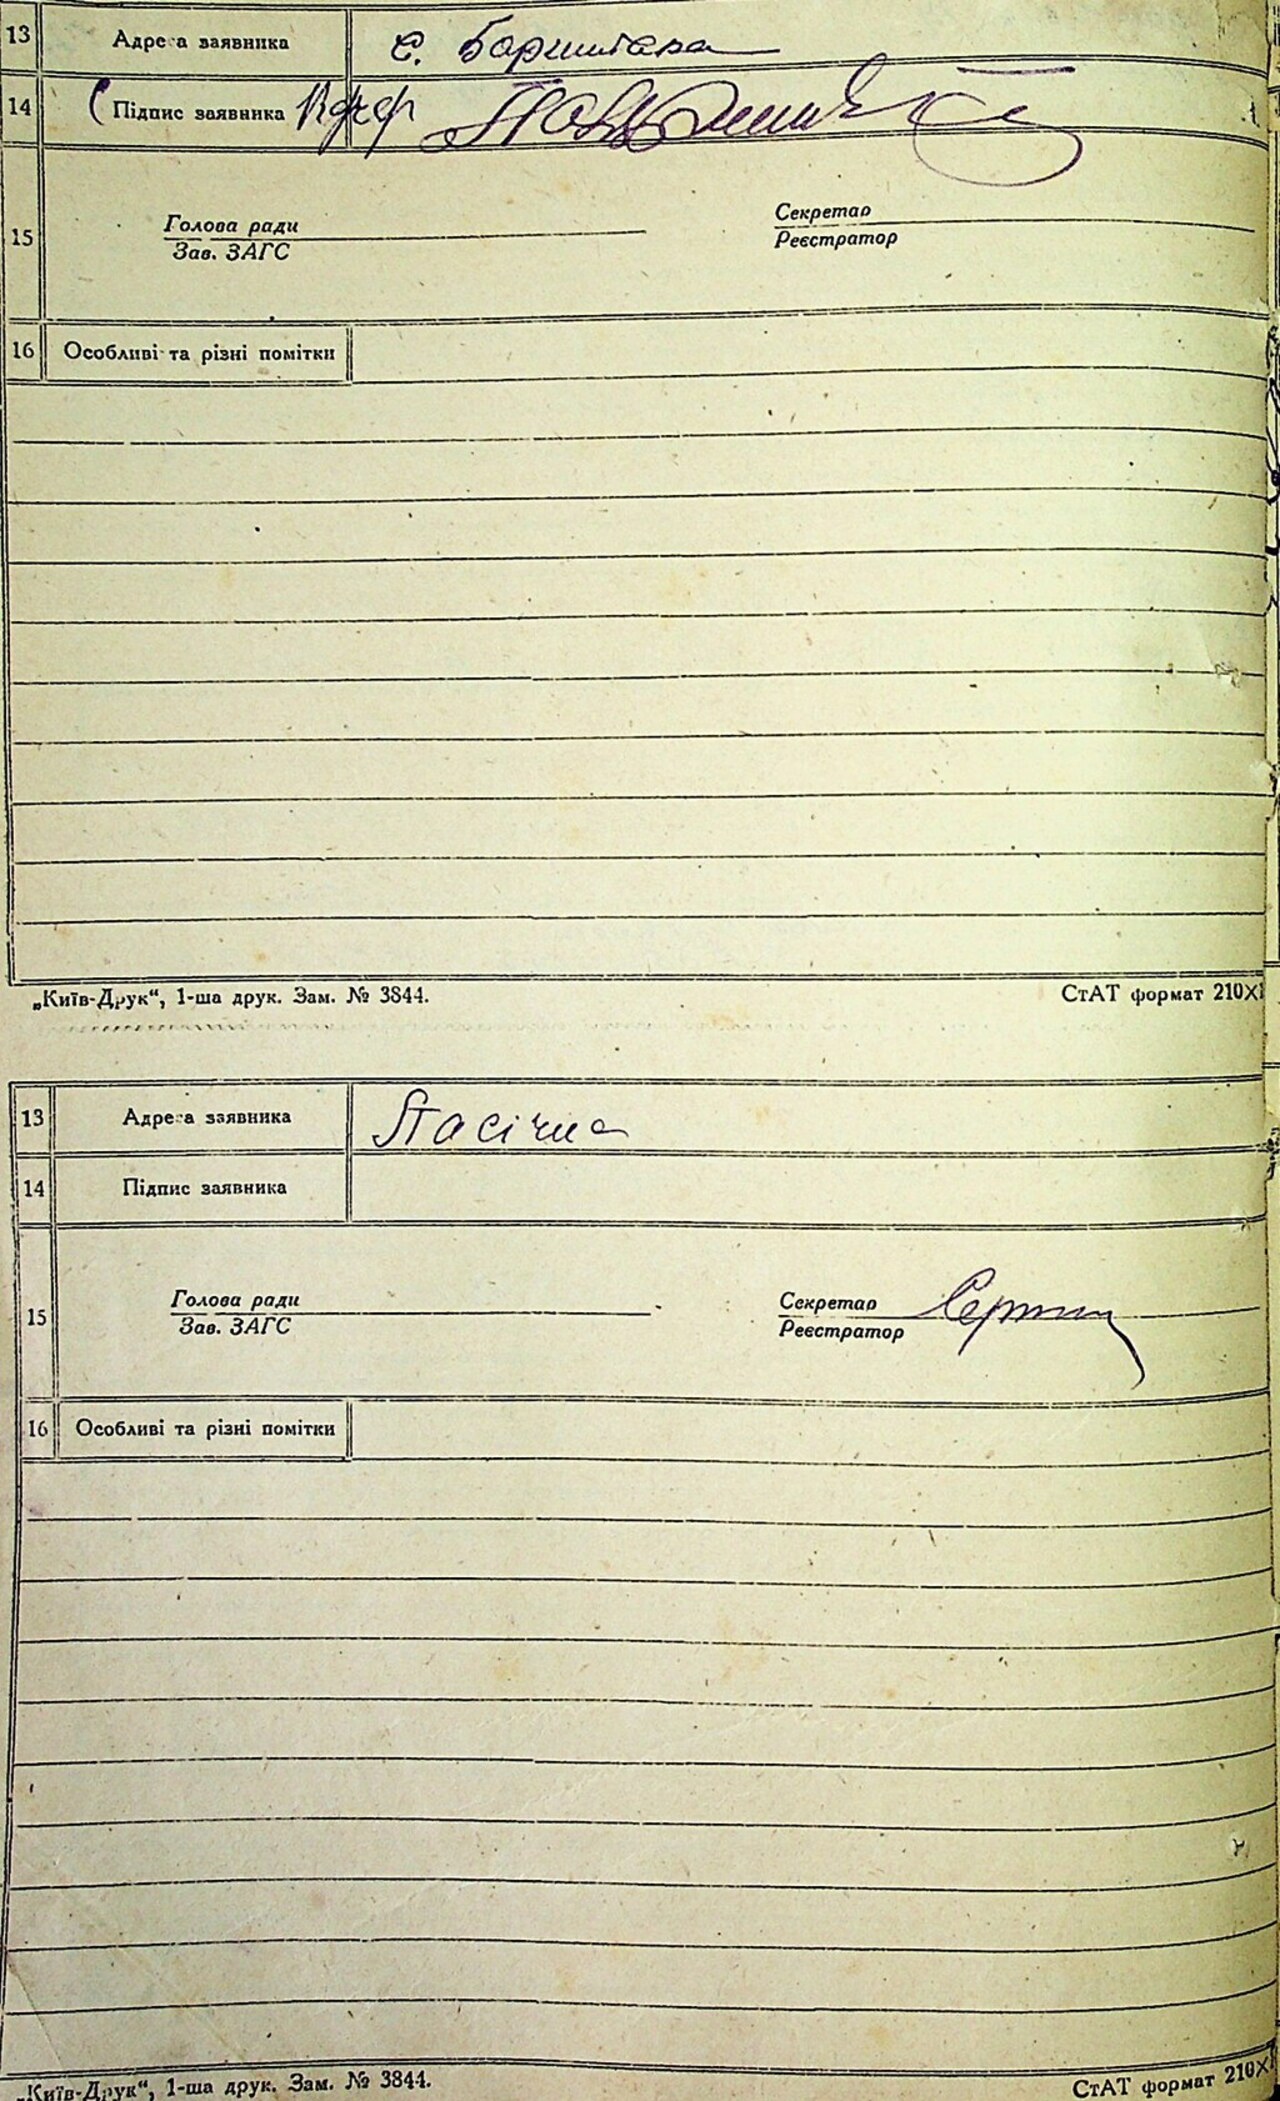 13 Адреса заявника с.
14 Підпис заявника
15 Голова ради Секретар
Зав. ЗАГС Реєстратор
16 Особливі та різні помітки
„Київ-Друк“, 1-ша друк. Зам. № 3844. СтАТ формат 210X
13 Адреса заявника Пасічна
14 Підпис заявника
15 Голова ради Секретар
Зав. ЗАГС Реєстратор
16 Особливі та різні помітки
„Київ-Друк“, 1-ша друк. Зам. № 3844. СтАТ формат 210X